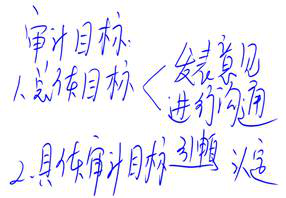 审计目标
1.总体目标 < 发表意见
进行沟通
2.具体审计目标 引 认定